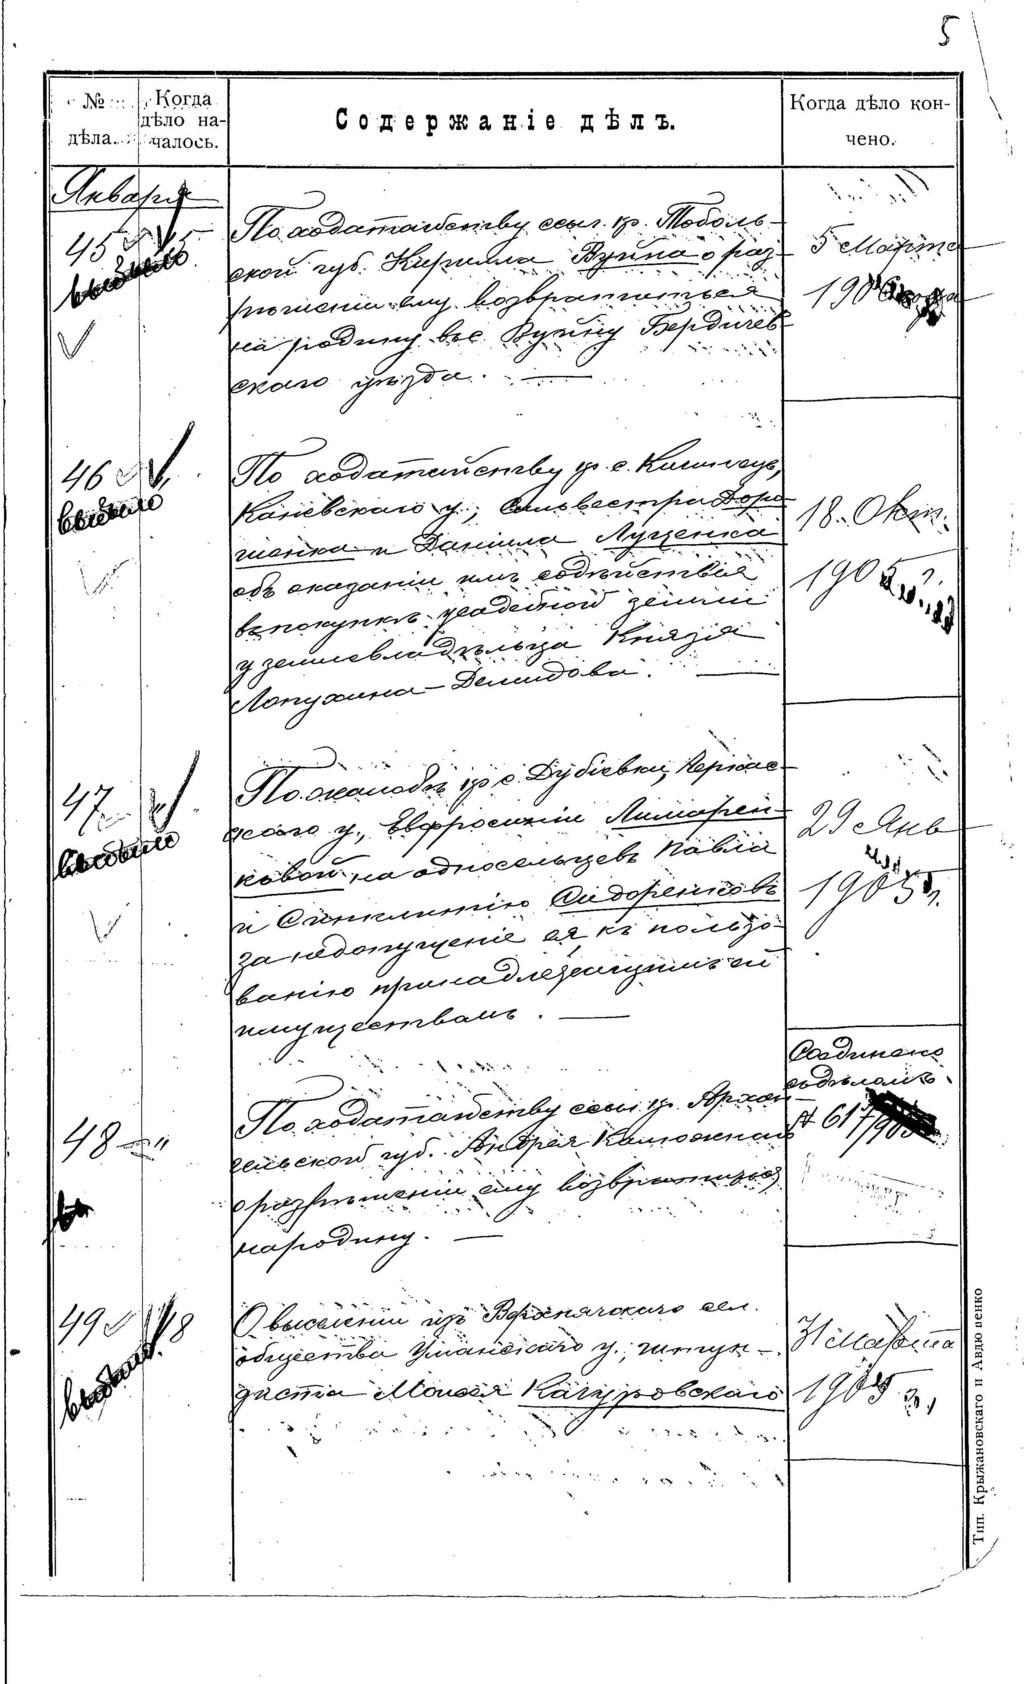 5
№ дѣла.
Когда дѣло началось.
Содержаніе дѣлъ.
Когда дѣло кончено.
Января
45 5
выбыло
По ходатайству ссыл. кр. Тоболь-
ской губ. Кирилла Вуйна о раз-
рѣшеніи ему возвратиться
на родину въ с. Бердичев-
скаго уѣзда.
5 Марта
190
46 "
выбыло
По ходатайству кр. с.
Каневскаго у., Сильвестра Доро-
шенка и Даніила Луценка
объ оказаніи имъ содѣйствія
въ покупкѣ усадебной земли
у землевладѣльца Князя
Лопухина-Демидова.
18 Окт.
1905 г.
47 "
выбыло
По жалобѣ кр. с. Дубіевки, Черкас-
скаго у., Евфросиніи Лимарен-
ковой на односельцевъ Павла
и Синклитію Сидоренковъ
за недопущеніе ея къ пользо-
ванію принадлежащимъ ей
имуществомъ.
29 Янв
1905 г.
48 "
По ходатайству ссыл. кр. Архан-
гельской губ. Андрея
о разрѣшеніи ему возвратиться
на родину.
Соединено
съ дѣломъ
№ 617/905
49 8
выбыло
О выселеніи изъ Верхнячскаго сел.
общества Уманскаго у., штун-
диста Моисея Качуровскаго
31 Марта
1905 г.
Тип. Крыжановскаго и Авдюшенко